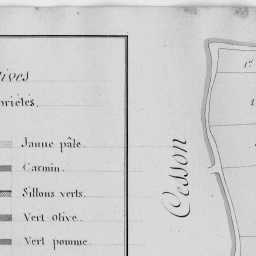 Jaune pâle.
Carmin.
Sillons verts.
Vert olive.
Vert pomme.
Cesson